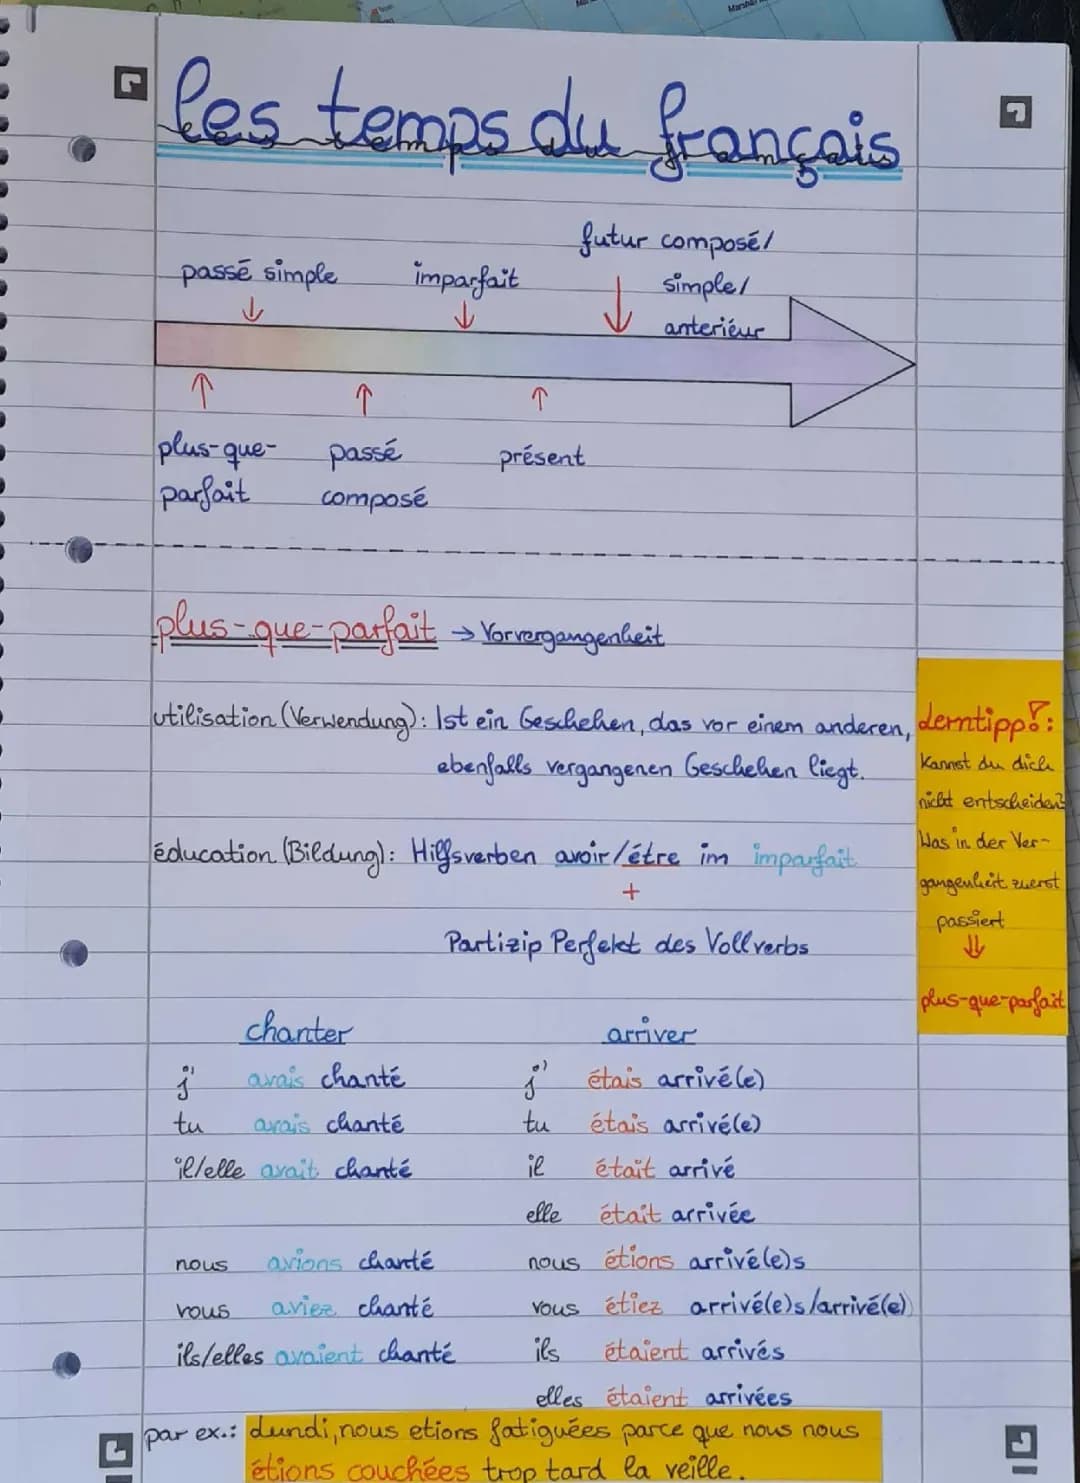 les temps du français
futur composé/
passé simple imparfait simple/
anteriéur
plus-que- passé présent
parfait composé
plus-que-parfait → Vorvergangenheit
utilisation (Verwendung): Ist ein Geschehen, das vor einem anderen,
ebenfalls vergangenen Geschehen liegt.
éducation (Bildung): Hilfsverben avoir/étre im imparfait
+
Partizip Perfekt des Vollverbs
Lerntipp!:
Kannst du dich
nicht entscheiden?
Was in der Ver-
gangenheit zuerst
passiert
⇓
plus-que-parfait
chanter arriver
j' avais chanté j' étais arrivé(e)
tu avais chanté tu étais arrivé(e)
il/elle avait chanté il était arrivé
elle était arrivée
nous avions chanté nous étions arrivé(e)s
vous aviez chanté vous étiez arrivé(e)s/arrivé(e)
ils/elles avaient chanté ils étaient arrivés
elles étaient arrivées
par ex.: Lundi, nous etions fatiguées parce que nous nous
étions couchées trop tard la veille.